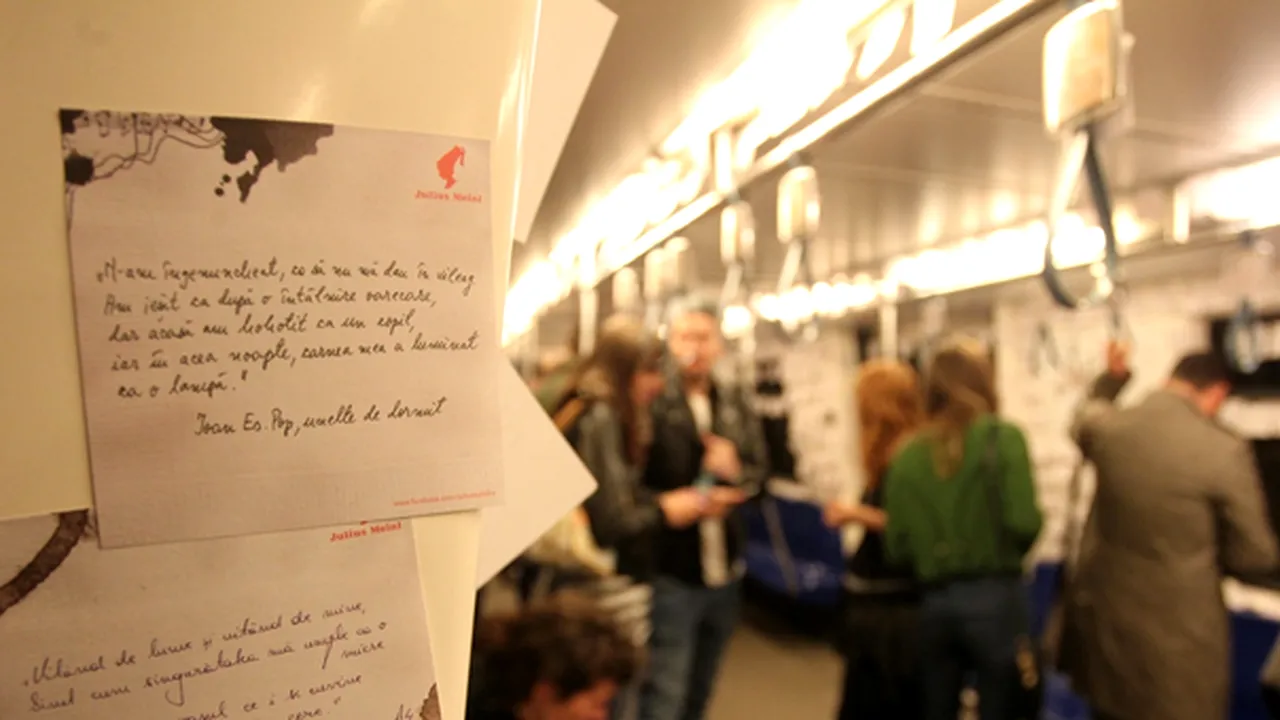 Julius Meinl
„M-am îngenuncheat, ca să nu mă dau în vileag
Am ieșit ca după o întâlnire oarecare,
dar acasă am hohotit ca un copil,
iar în acea noapte, carnea mea a luminat
ca o lampă."
Ioan Es. Pop, unelte de dormit
Julius Meinl
„Uitând de lume și uitând de mine,
Simt cum singurătatea mă umple ca o
ce i se cuvine